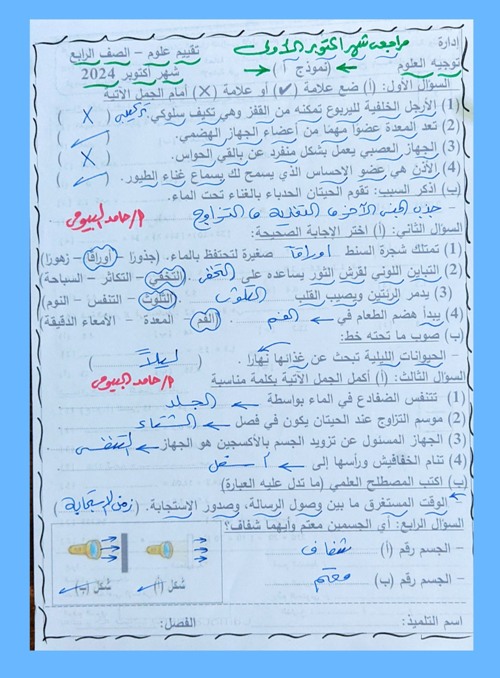 إدارة مراجعى شهر اكتوبر الأولى تقييم علوم – الصف الرابع
توجيه العلوم (نموذج أ) شهر أكتوبر 2024
السؤال الأول: (أ) ضع علامة (✓) أو علامة (×) أمام الجمل الآتية
(1) الأرجل الخلفية لليربوع تمكنه من القفز وهي تكيف سلوكي. تركيبى ( X )
(2) تعد المعدة عضوًا مهمًا من أعضاء الجهاز الهضمي. ( ✓ )
(3) الجهاز العصبي يعمل بشكل منفرد عن باقي الحواس. ( X )
(4) الأذن هي عضو الإحساس الذي يسمح لك بسماع غناء الطيور. ( ✓ )
(ب) اذكر السبب: تقوم الحيتان الحدباء بالغناء تحت الماء.
- جذب الجنس الآخر، التغذية، التزاوج أ/حامد البيومى
السؤال الثاني: (أ) اختر الإجابة الصحيحة:
(1) تمتلك شجرة السنط أوراقاً صغيرة لتحتفظ بالماء. (جذورًا – أوراقًا – زهورًا)
(2) التباين اللوني لقرش الثور يساعده على التخفى. (التخفي – التكاثر – السباحة)
(3) يدمر الرئتين ويصيب القلب التلوث (التلوث – التنفس – النوم)
(4) يبدأ هضم الطعام في ← الفم (الفم – المعدة – الأمعاء الدقيقة)
(ب) صوب ما تحته خط:
- الحيوانات الليلية تبحث عن غذائها نهارا. ( ليلاً )
السؤال الثالث: (أ) أكمل الجمل الآتية بكلمة مناسبة أ/حامد البيومى
(1) تتنفس الضفادع في الماء بواسطة ← الجلد
(2) موسم التزاوج عند الحيتان يكون في فصل ← الشتاء
(3) الجهاز المسئول عن تزويد الجسم بالأكسجين هو الجهاز ← التنفسى
(4) تنام الخفافيش ورأسها إلى ← أسفل
(ب) اكتب المصطلح العلمي (ما تدل عليه العبارة)
- الوقت المستغرق ما بين وصول الرسالة، وصدور الاستجابة. ( زمن الاستجابة )
السؤال الرابع: أي الجسمين معتم وأيهما شفاف؟
– الجسم رقم (أ) شفاف
– الجسم رقم (ب) معتم
شكل (أ) شكل (ب)
اسم التلميذ: الفصل: